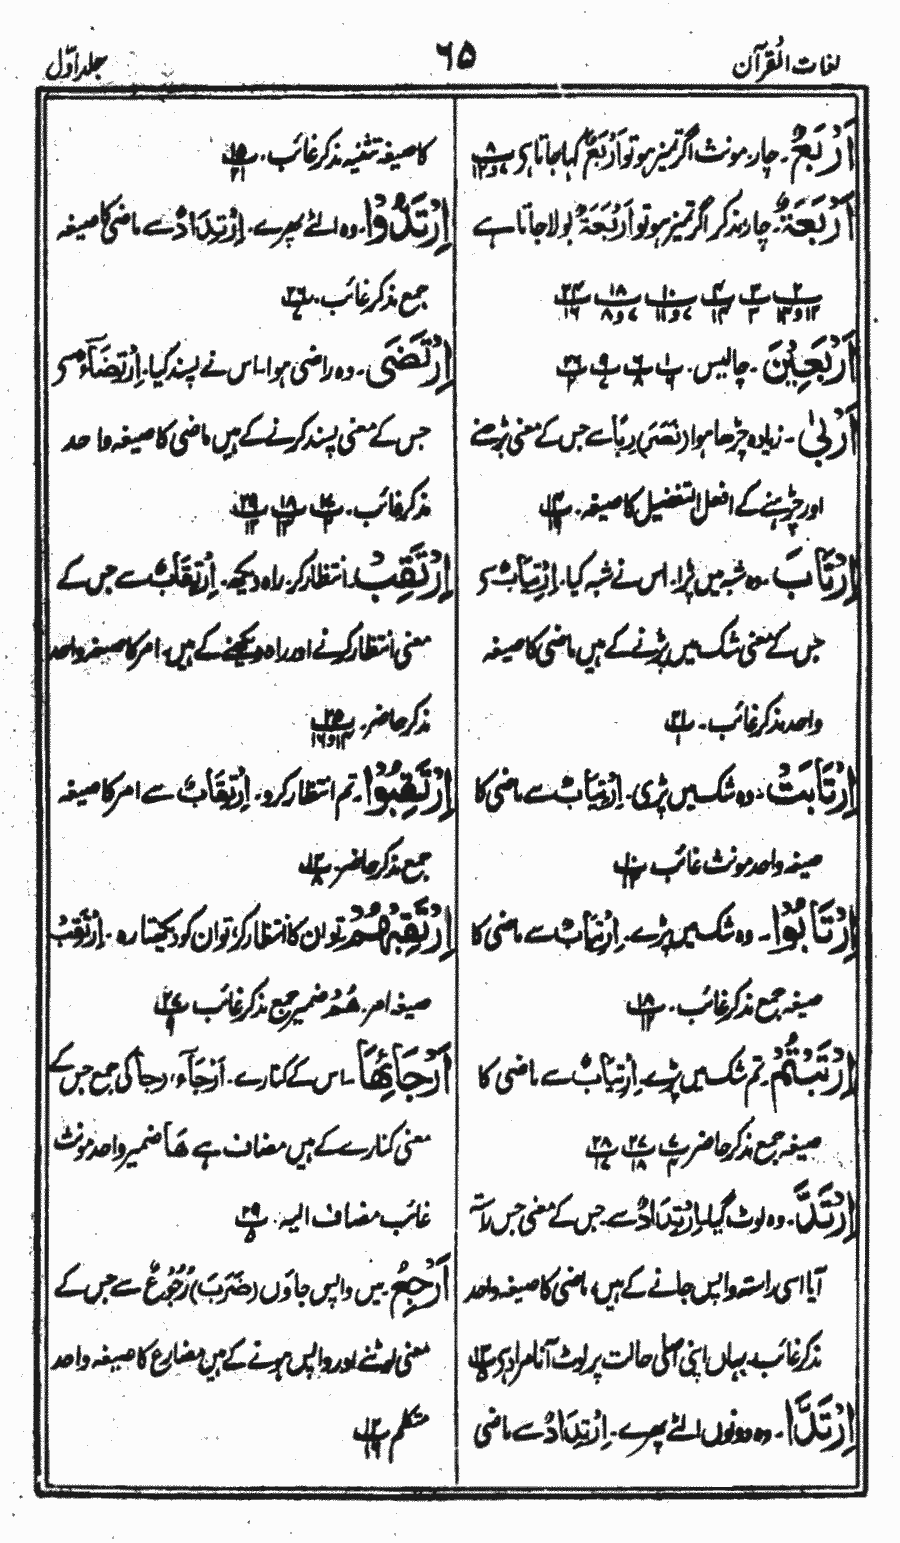 لغات القرآن
۶۵
جلد اوّل
اَرْبَعٌ۔ چار، مونث اگر تمیز ہو تو اَرْبَعٌ کہا جاتا ہے
اَرْبَعَۃٌ۔ چار، مذکر اگر تمیز ہو تو اَرْبَعَۃٌ بولا جاتا ہے
اَرْبَعِیْنَ۔ چالیس۔
اَرْبٰی۔ زیادہ چڑھا ہوا (نَصَرَ) رِبًا سے جس کے معنی بڑھنے
اور چڑہنے کے افعل التفضیل کا صیغہ۔
اِرْتَابَ۔ وہ شبہ میں پڑا۔ اس نے شبہ کیا۔ اِرْتِیَابٌ سے
جس کے معنی شک میں پڑنے کے ہیں ماضی کا صیغہ
واحد مذکر غائب۔
اِرْتَابَتْ۔ وہ شک میں پڑی، اِرْتِیَابٌ سے ماضی کا
صیغہ واحد مونث غائب
اِرْتَابُوْا۔ وہ شک میں پڑے۔ اِرْتِیَابٌ سے ماضی کا
صیغہ جمع مذکر غائب۔
اِرْتَبْتُمْ۔ تم شک میں پڑے۔ اِرْتِیَابٌ سے ماضی کا
صیغہ جمع مذکر حاضر
اِرْتَدَّ۔ وہ لوٹ گیا۔ اِرْتِدَادٌ سے۔ جس کے معنی جس راستہ
آیا اسی راستہ واپس جانے کے ہیں، ماضی کا صیغہ واحد
مذکر غائب، یہاں اپنی اصلی حالت پر لوٹ آنا مراد ہے
اِرْتَدَّا۔ وہ دونوں الٹے پھرے۔ اِرْتِدَادٌ سے ماضی
کا صیغہ تثنیہ مذکر غائب۔
اِرْتَدُّوْا۔ وہ الٹے پھرے۔ اِرْتِدَادٌ سے ماضی کا صیغہ
جمع مذکر غائب۔
اِرْتَضٰی۔ وہ راضی ہوا۔ اس نے پسند کیا۔ اِرْتِضَاءٌ سے
جس کے معنی پسند کرنے کے ہیں ماضی کا صیغہ واحد
مذکر غائب۔
اِرْتَقِبْ۔ انتظار کر۔ راہ دیکھ۔ اِرْتِقَابٌ سے جس کے
معنی انتظار کرنے اور راہ دیکھنے کے ہیں۔ امر کا صیغہ واحد
مذکر حاضر۔
اِرْتَقِبُوْا۔ تم انتظار کرو۔ اِرْتِقَابٌ سے امر کا صیغہ
جمع مذکر حاضر۔
اِرْتَقِبْهُمْ تو ان کا انتظار کر، تو ان کو دیکھتا رہ۔ اِرْتَقِبْ
صیغہ امر۔ هُمْ ضمیر جمع مذکر غائب
اَرْجَآئِهَا۔ اس کے کنارے۔ اَرْجَآء، رجا کی جمع جس کے
معنی کنارے کے ہیں مضاف ہے هَا ضمیر واحد مونث
غائب مضاف الیہ۔
اَرْجِعُ۔ میں واپس جاؤں (ضَرَبَ) رُجُوْعٌ سے جس کے
معنی لوٹنے اور واپس ہونے کے ہیں مضارع کا صیغہ واحد
متکلم